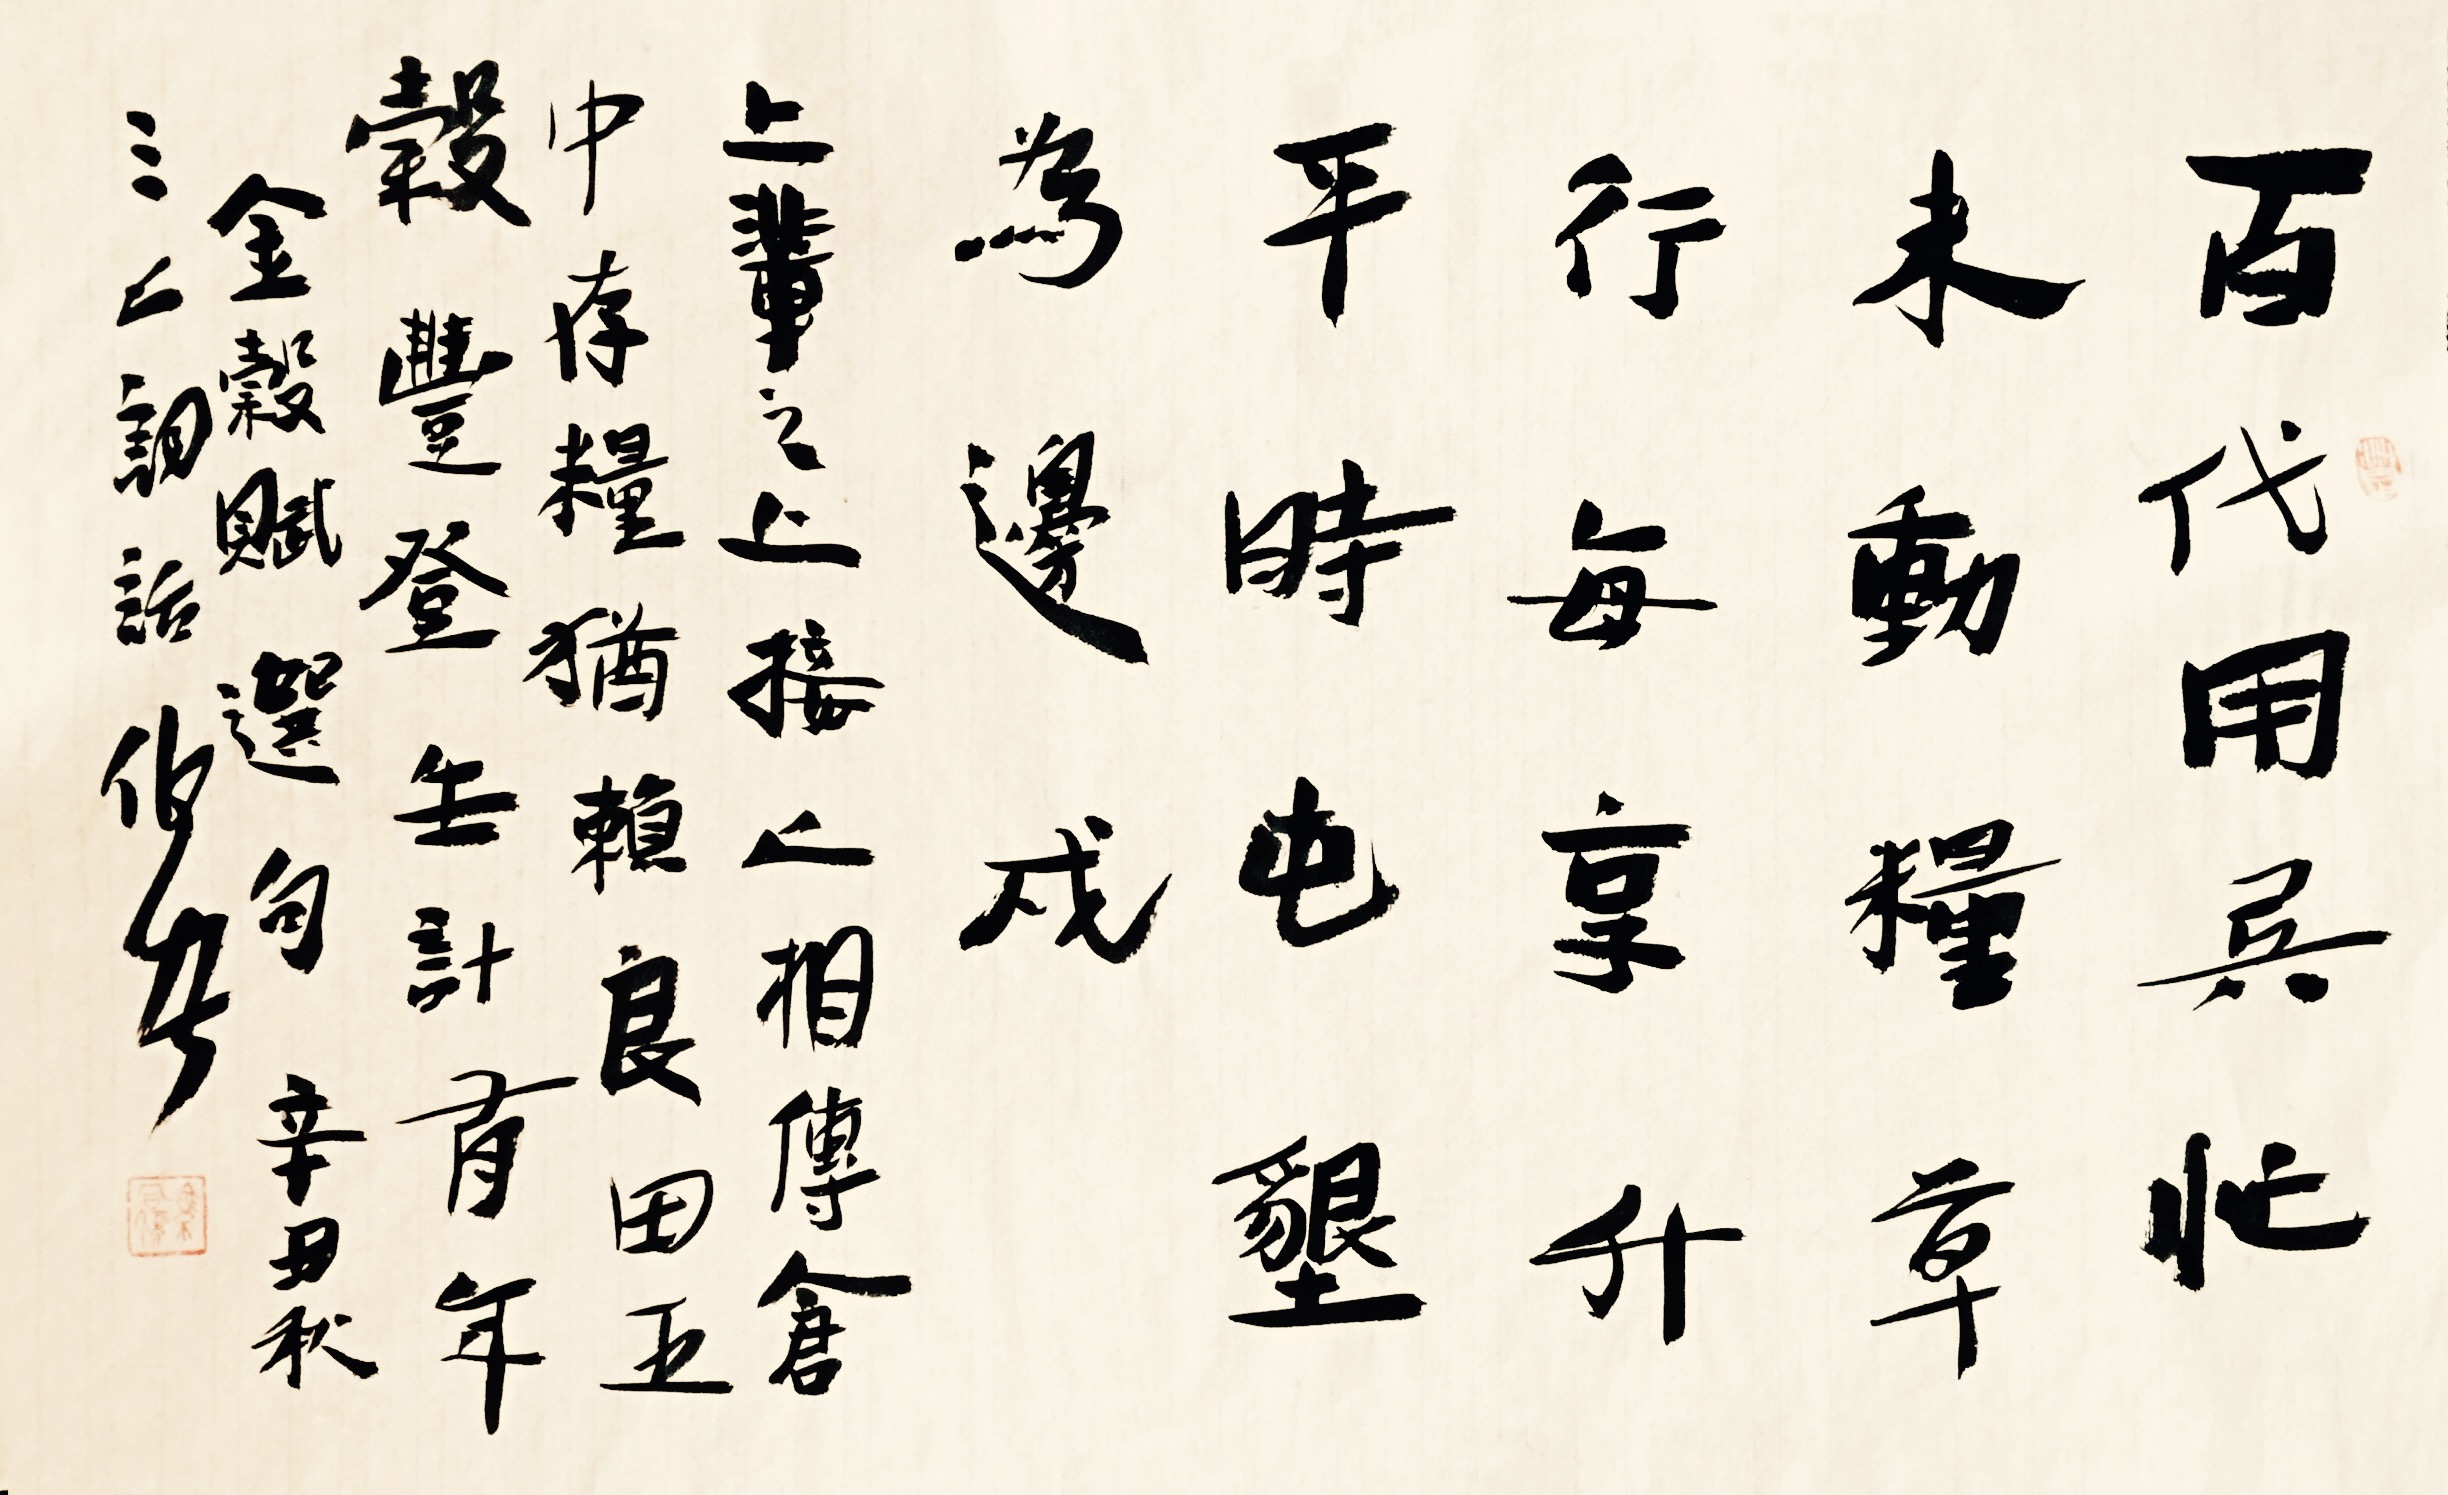 百代用兵忙
未動糧草
行每享升
平時屯墾
為邊戍
上輩之上接人相傳倉
中存糧猶賴良田五
穀豐登年計有年
金穀賦選句辛丑秋
三人詞話伯